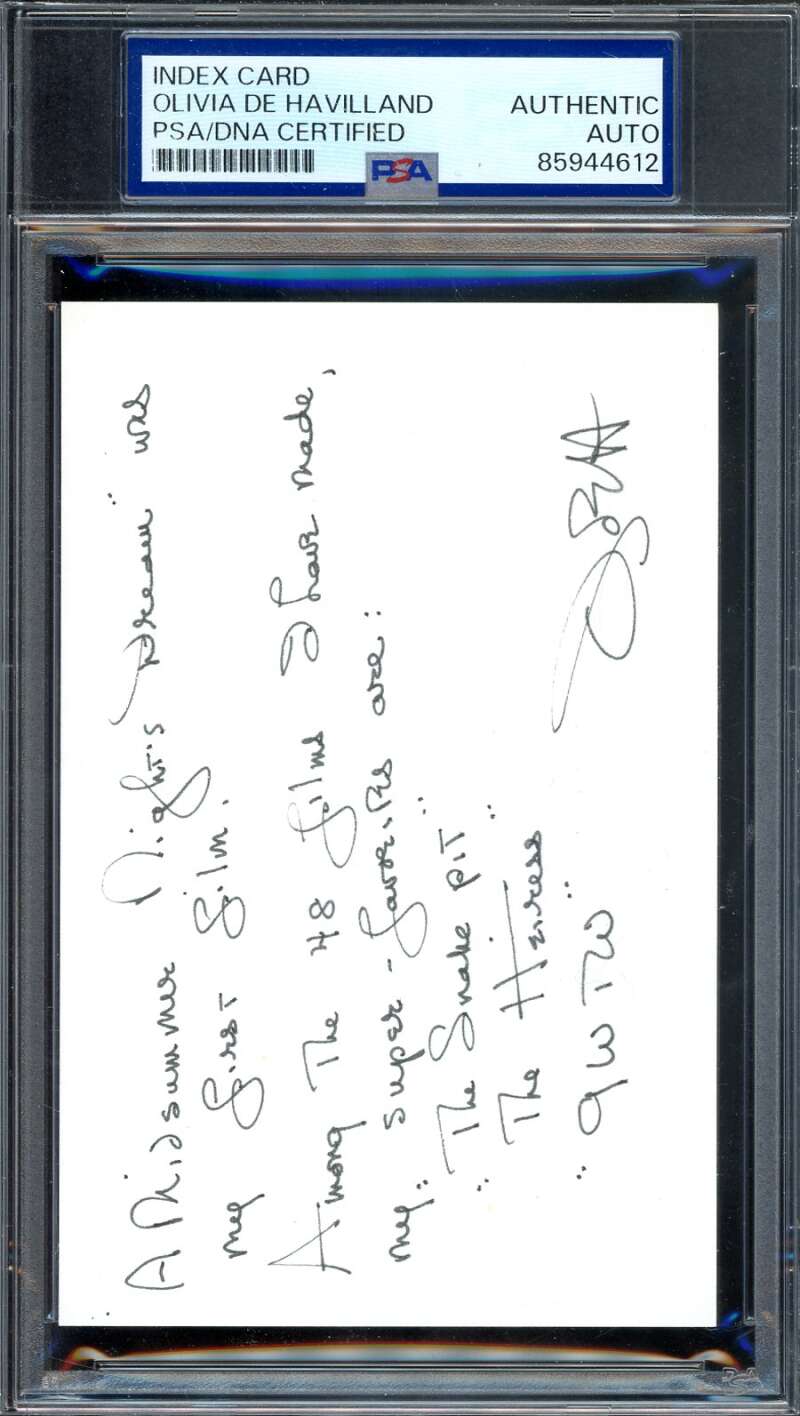 INDEX CARD
OLIVIA DE HAVILLAND
PSA/DNA CERTIFIED
AUTHENTIC
AUTO
85944612
PSA
A Midsummer Night's Dream" was
my first film.
Among The 48 films I have made,
my super-favorites are:
"The Snake Pit"
"The Heiress"
"GWTW"
OdeH